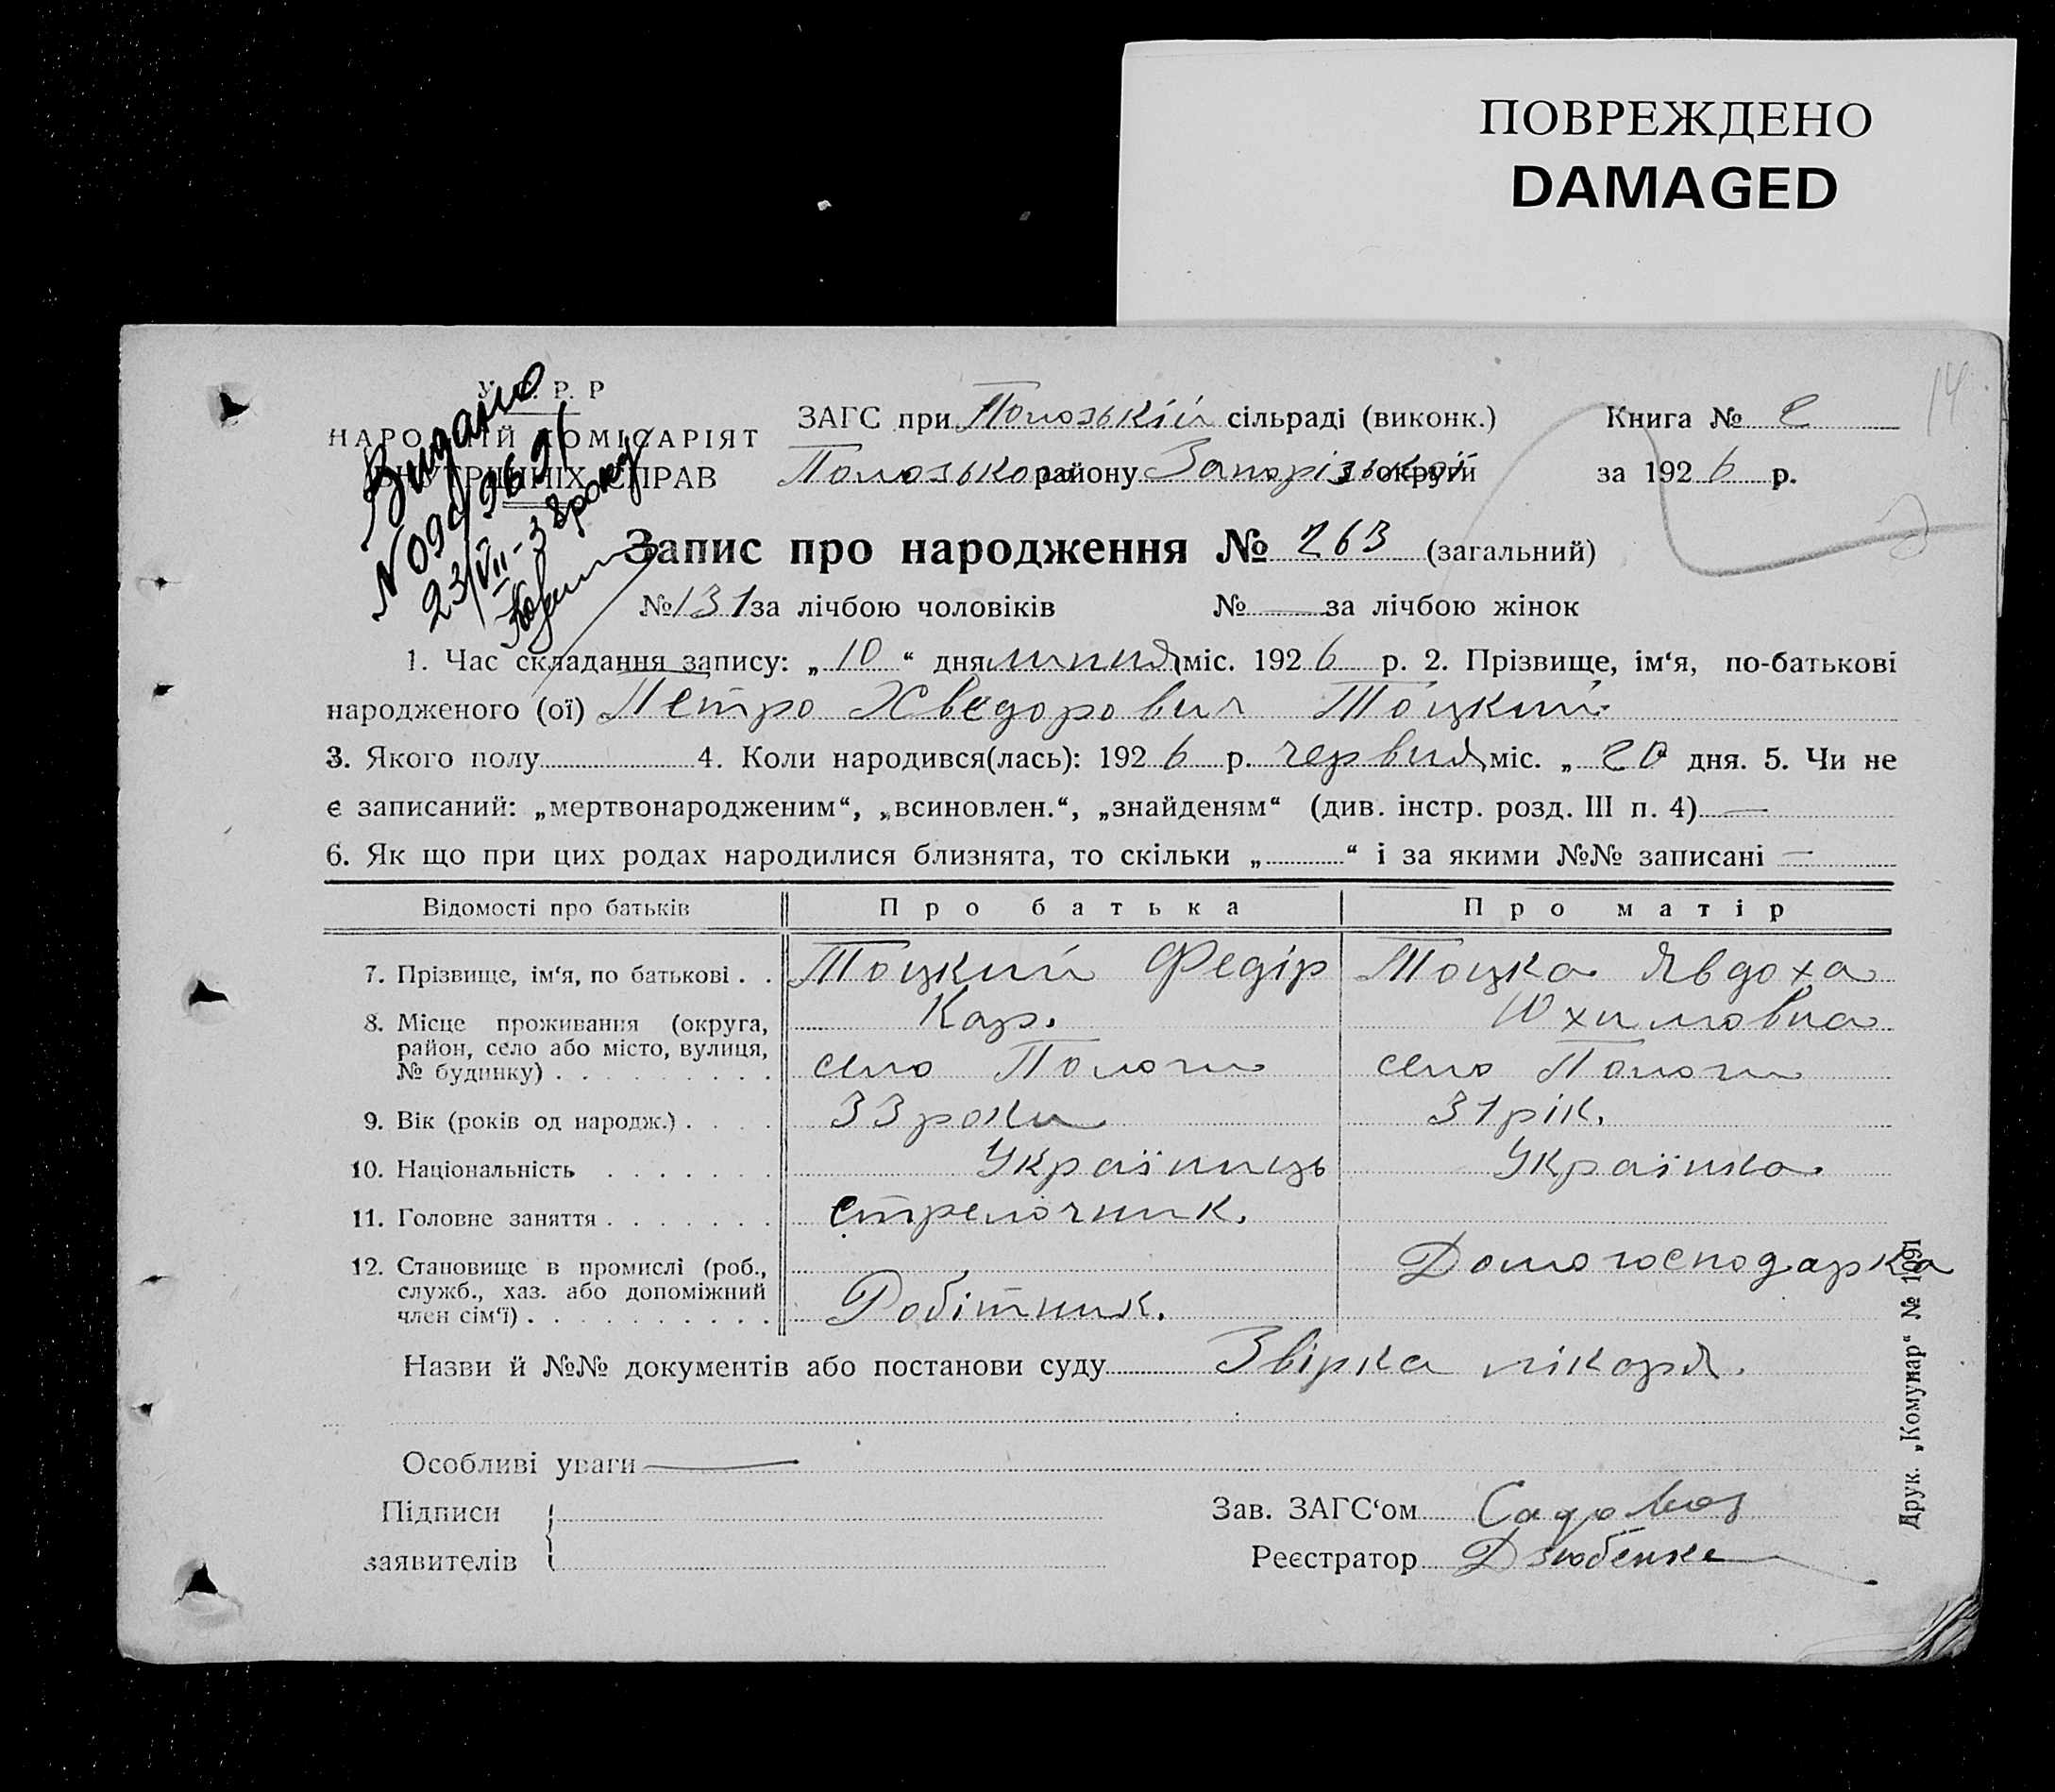 ПОВРЕЖДЕНО
DAMAGED
14
У. Р. Р
НАРОДНІЙ КОМІСАРІЯТ
ВНУТРІШНІХ СПРАВ
Видано
23/VII-38 року
ЗАГС при Полозькій сільраді (виконк.)
Полозького району Запорізької округи
Книга № 2
за 1926 р.
Запис про народження № 263 (загальний)
№ 131 за лічбою чоловіків № — за лічбою жінок
1. Час складання запису: „ 10 “ дня липня міс. 1926 р. 2. Прізвище, ім‘я, по-батькові
народженого (ої) Петро Хведорович Тоцкий
3. Якого полу 4. Коли народився(лась): 1926 р. червня міс. „ 20 дня. 5. Чи не
є записаний: „мертвонародженим“, „всиновлен.“, „знайденям“ (див. інстр. розд. III п. 4) —
6. Як що при цих родах народилися близнята, то скільки „ “ і за якими №№ записані —
Відомості про батьків Про батька Про матір
7. Прізвище, ім‘я, по батькові . . Тоцкий Федір Тоцка Явдоха
Кар. Юхимовна
8. Місце проживання (округа,
район, село або місто, вулиця,
№ будинку) . село Пологи село Пологи
9. Вік (років од народж.) . 33 роки 31 рік.
10. Національність Українець Українка.
11. Головне заняття . стрелочник.
12. Становище в промислі (роб.,
служб., хаз. або допоміжний
член сім‘ї) . Робітник. Домогосподарка
Назви й №№ документів або постанови суду Звірка лікаря.
Особливі уваги —
Підписи
заявителів
Зав. ЗАГС‘ом
Реєстратор Дзюбенко
Друк. „Комунар“ № 1091